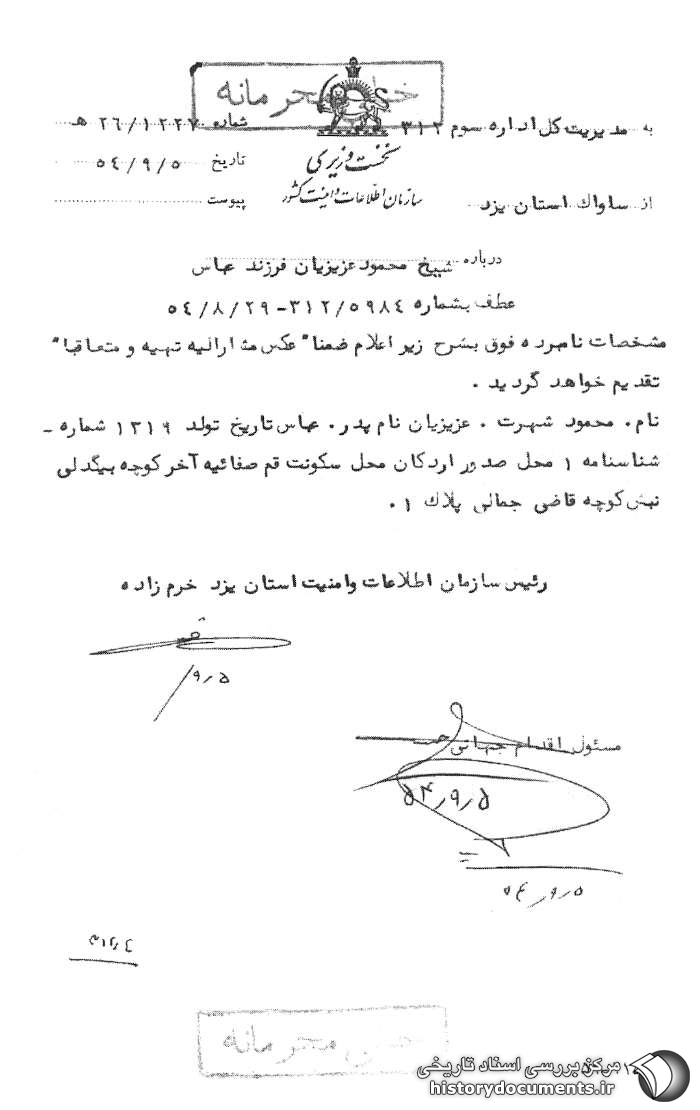 خیلی محرمانه
به مدیریت کل اداره سوم ۳۱۲
شماره ۲۶/۱۲۲۷ هـ
نخست وزیری
تاریخ ۵٤/۹/۵
از ساواك استان یزد
سازمان اطلاعات و امنیت کشور
پیوست
درباره شیخ محمود عزیزیان فرزند عباس
عطف بشماره ۳۱۲/۵۹۸٤-۵٤/۸/۲۹
مشخصات نامبرده فوق بشرح زیر اعلام ضمنا" عکس مشارالیه تهیه و متعاقبا"
تقدیم خواهد گردید .
نام . محمود شهرت . عزیزیان نام پدر . عباس تاریخ تولد ۱۳۱۹ شماره -
شناسنامه ۱ محل صدور اردکان محل سکونت قم صفائیه آخر کوچه بیگدلی
نبش کوچه قاضی جمالی پلاك ۱ .
رئیس سازمان اطلاعات وامنیت استان یزد خرم زاده
۹/۵
مسئول اقدام جهانی
۵۴/۹/۵
۵٤/۹/۵
خیلی محرمانه
مرکز بررسی اسناد تاریخی
historydocuments.ir